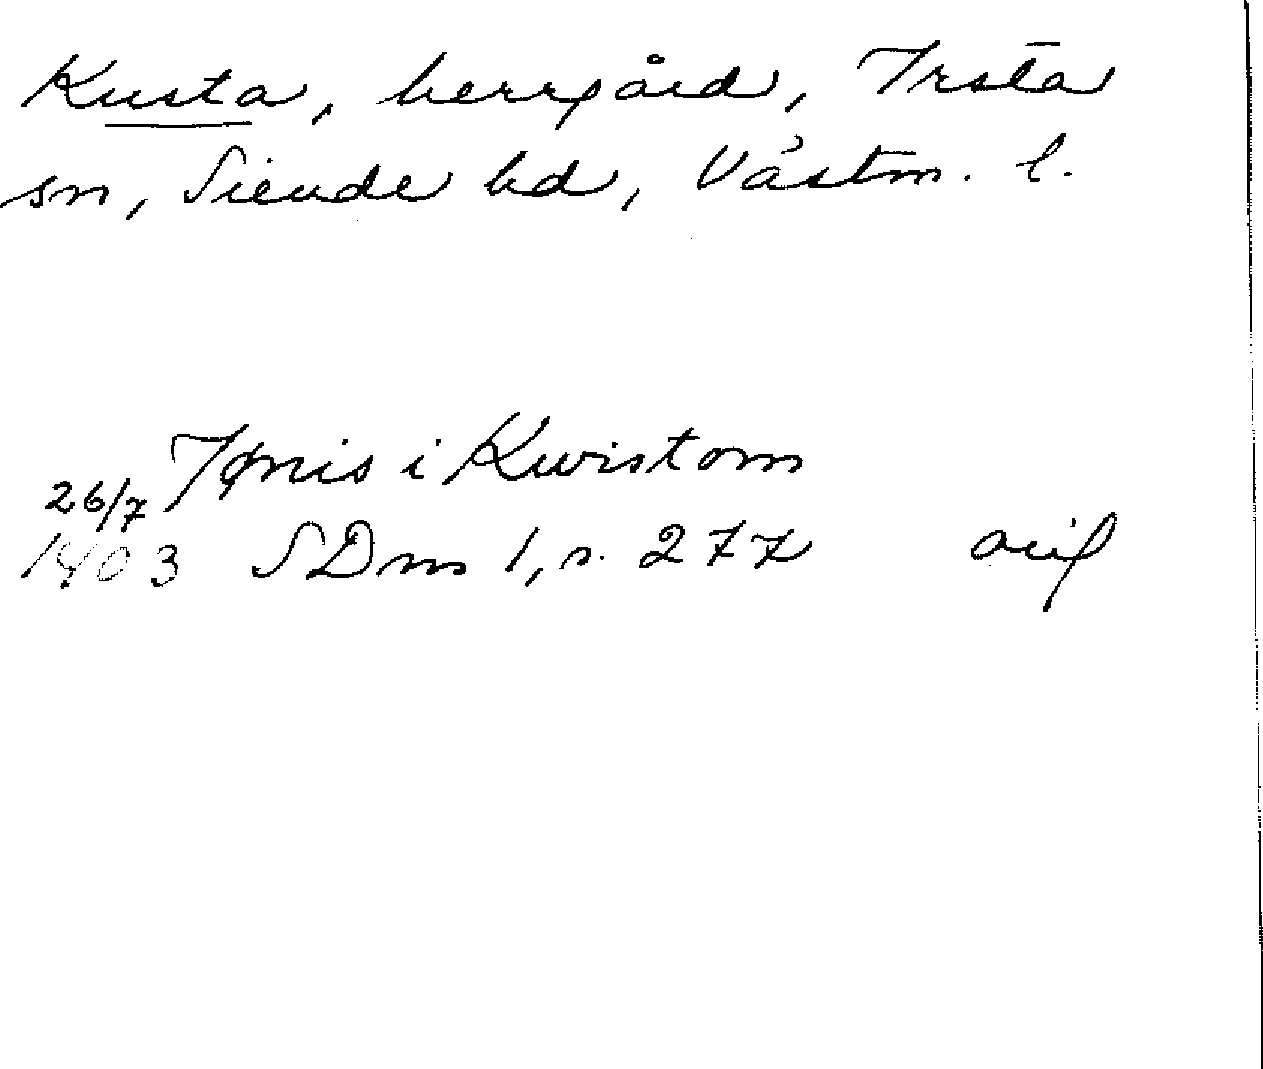 Kusta, herrgård, Irsta
sn, Siende hd, Västm. l.
Jønis i Kwistom
26/7
1403 SDns 1, s. 277